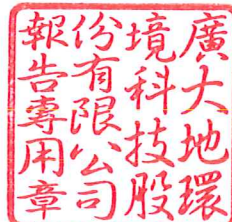 廣大地環
境科技股
份有限公司
報告專用章